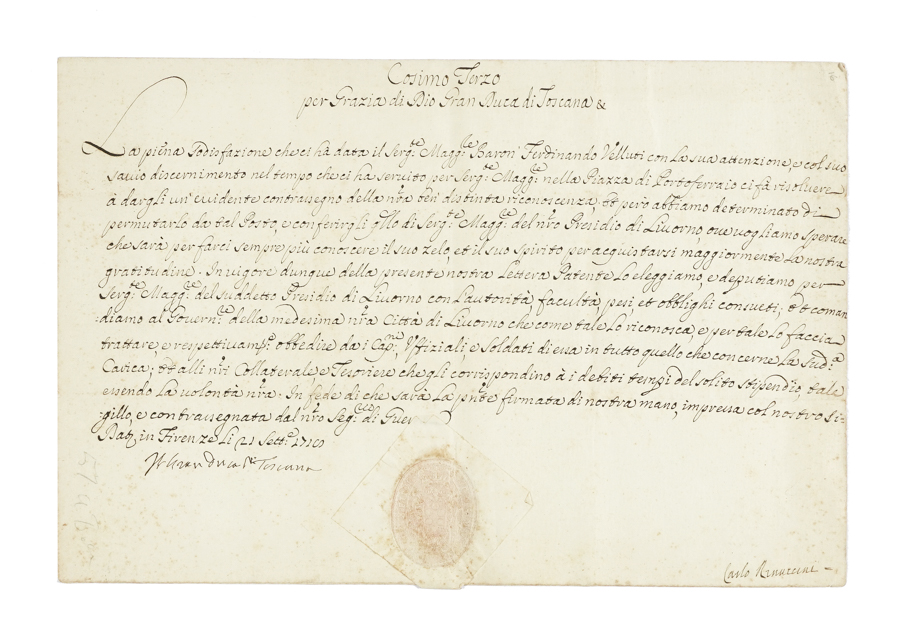 Cosimo Terzo
per Grazia di Dio Gran Duca di Toscana &
La piena sodisfazione che ci hà data il Serg:te Magg:re Baron Ferdinando Velluti con la sua attenzione, e col suo
savio discernimento nel tempo che ci ha servito per Serg:te Magg:re nella Piazza di Portoferraio ci fà risolvere
à dargli un' evidente contrasegno della nr̃a distinta riconoscenza, Et però abbiamo determinato di
permutarlo da tal Posto, e conferirgli q̃llo di Serg:te Magg:re del nr̃o Presidio di Livorno, ove vogliamo sperare
che sarà per farci sempre più conoscere il suo zelo, et il suo spirito per acquistarsi maggiormente la nostra
gratitudine. In vigore dunque della presente nostra Lettera Patente Lo eleggiamo, e deputiamo per
Serg:te Magg:re del suddetto Presidio di Livorno con l'autorità, facultà, pesi, et obblighi consueti; Et coman
:diamo al Govern:re della medesima nr̃a Città di Livorno che come tale Lo riconosca, e per tale Lo faccia
trattare, e respettivam:te obbedire da i Cap:ni, Uffiziali, e Soldati di essa in tutto quello che concerne La sud:a
Carica; Et alli nr̃i Collaterale, e Tesoriere che gli corrispondino à i debiti tempi del solito stipendio, tale
essendo la volontà nr̃a. In fede di che sarà La pn̄te firmata di nostra mano, impressa col nostro Si=
:gillo, e contrassegnata dal nr̃o Seg:rio di Guer
Dat: in Firenze Li 21 Sett:e 1710
Il Gran Duca di Toscana
Carlo Rinuccini